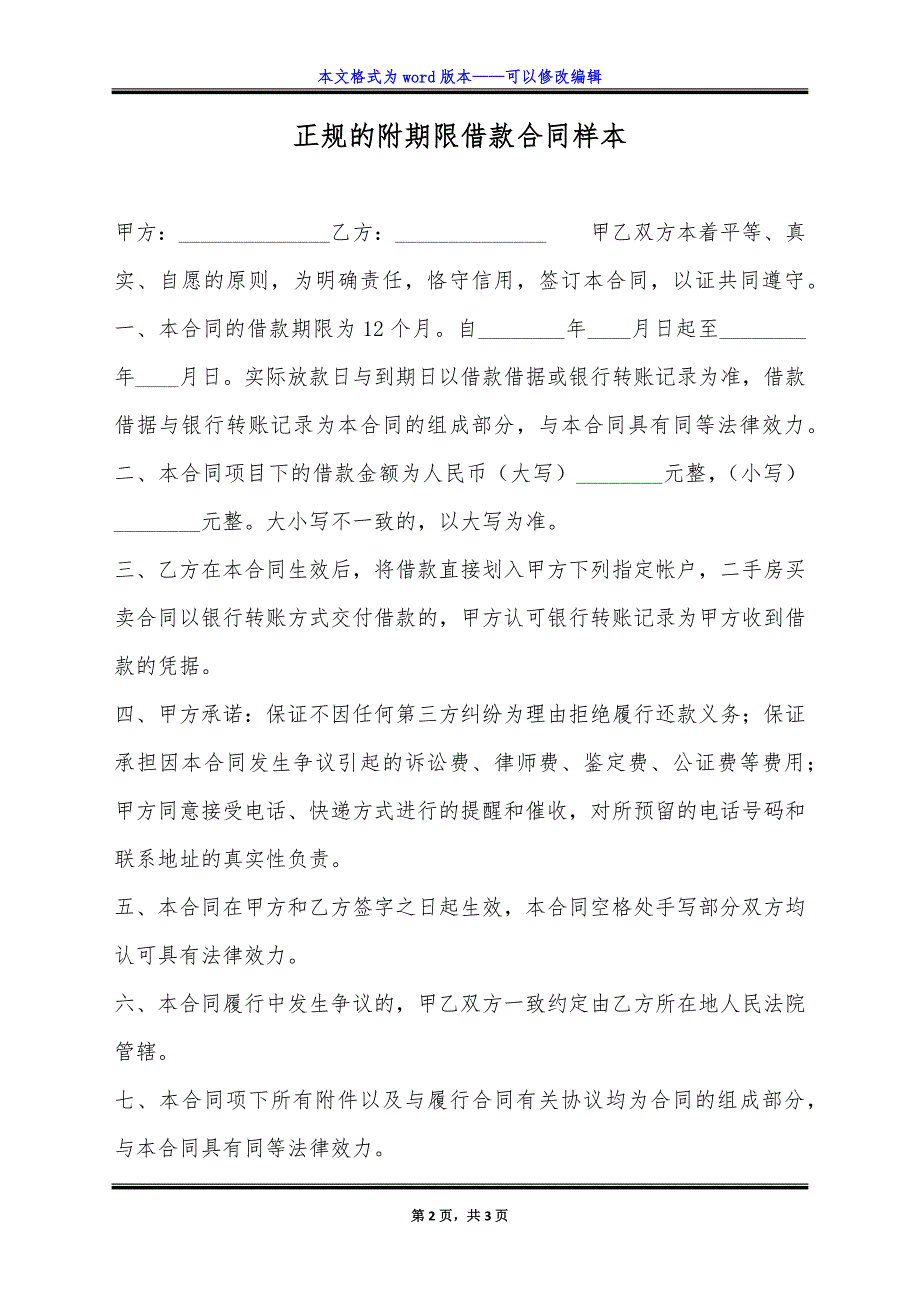 本文格式为 word 版本——可以修改编辑
正规的附期限借款合同样本
甲方：______________乙方：______________　　甲乙双方本着平等、真
实、自愿的原则，为明确责任，恪守信用，签订本合同，以证共同遵守。
一、本合同的借款期限为 12 个月。自________年____月日起至________
年____月日。实际放款日与到期日以借款借据或银行转账记录为准，借款
借据与银行转账记录为本合同的组成部分，与本合同具有同等法律效力。
二、本合同项目下的借款金额为人民币（大写）________元整，（小写）
________元整。大小写不一致的，以大写为准。
三、乙方在本合同生效后，将借款直接划入甲方下列指定帐户，二手房买
卖合同以银行转账方式交付借款的，甲方认可银行转账记录为甲方收到借
款的凭据。
四、甲方承诺：保证不因任何第三方纠纷为理由拒绝履行还款义务；保证
承担因本合同发生争议引起的诉讼费、律师费、鉴定费、公证费等费用；
甲方同意接受电话、快递方式进行的提醒和催收，对所预留的电话号码和
联系地址的真实性负责。
五、本合同在甲方和乙方签字之日起生效，本合同空格处手写部分双方均
认可具有法律效力。
六、本合同履行中发生争议的，甲乙双方一致约定由乙方所在地人民法院
管辖。
七、本合同项下所有附件以及与履行合同有关协议均为合同的组成部分，
与本合同具有同等法律效力。
第 2 页，共 3 页